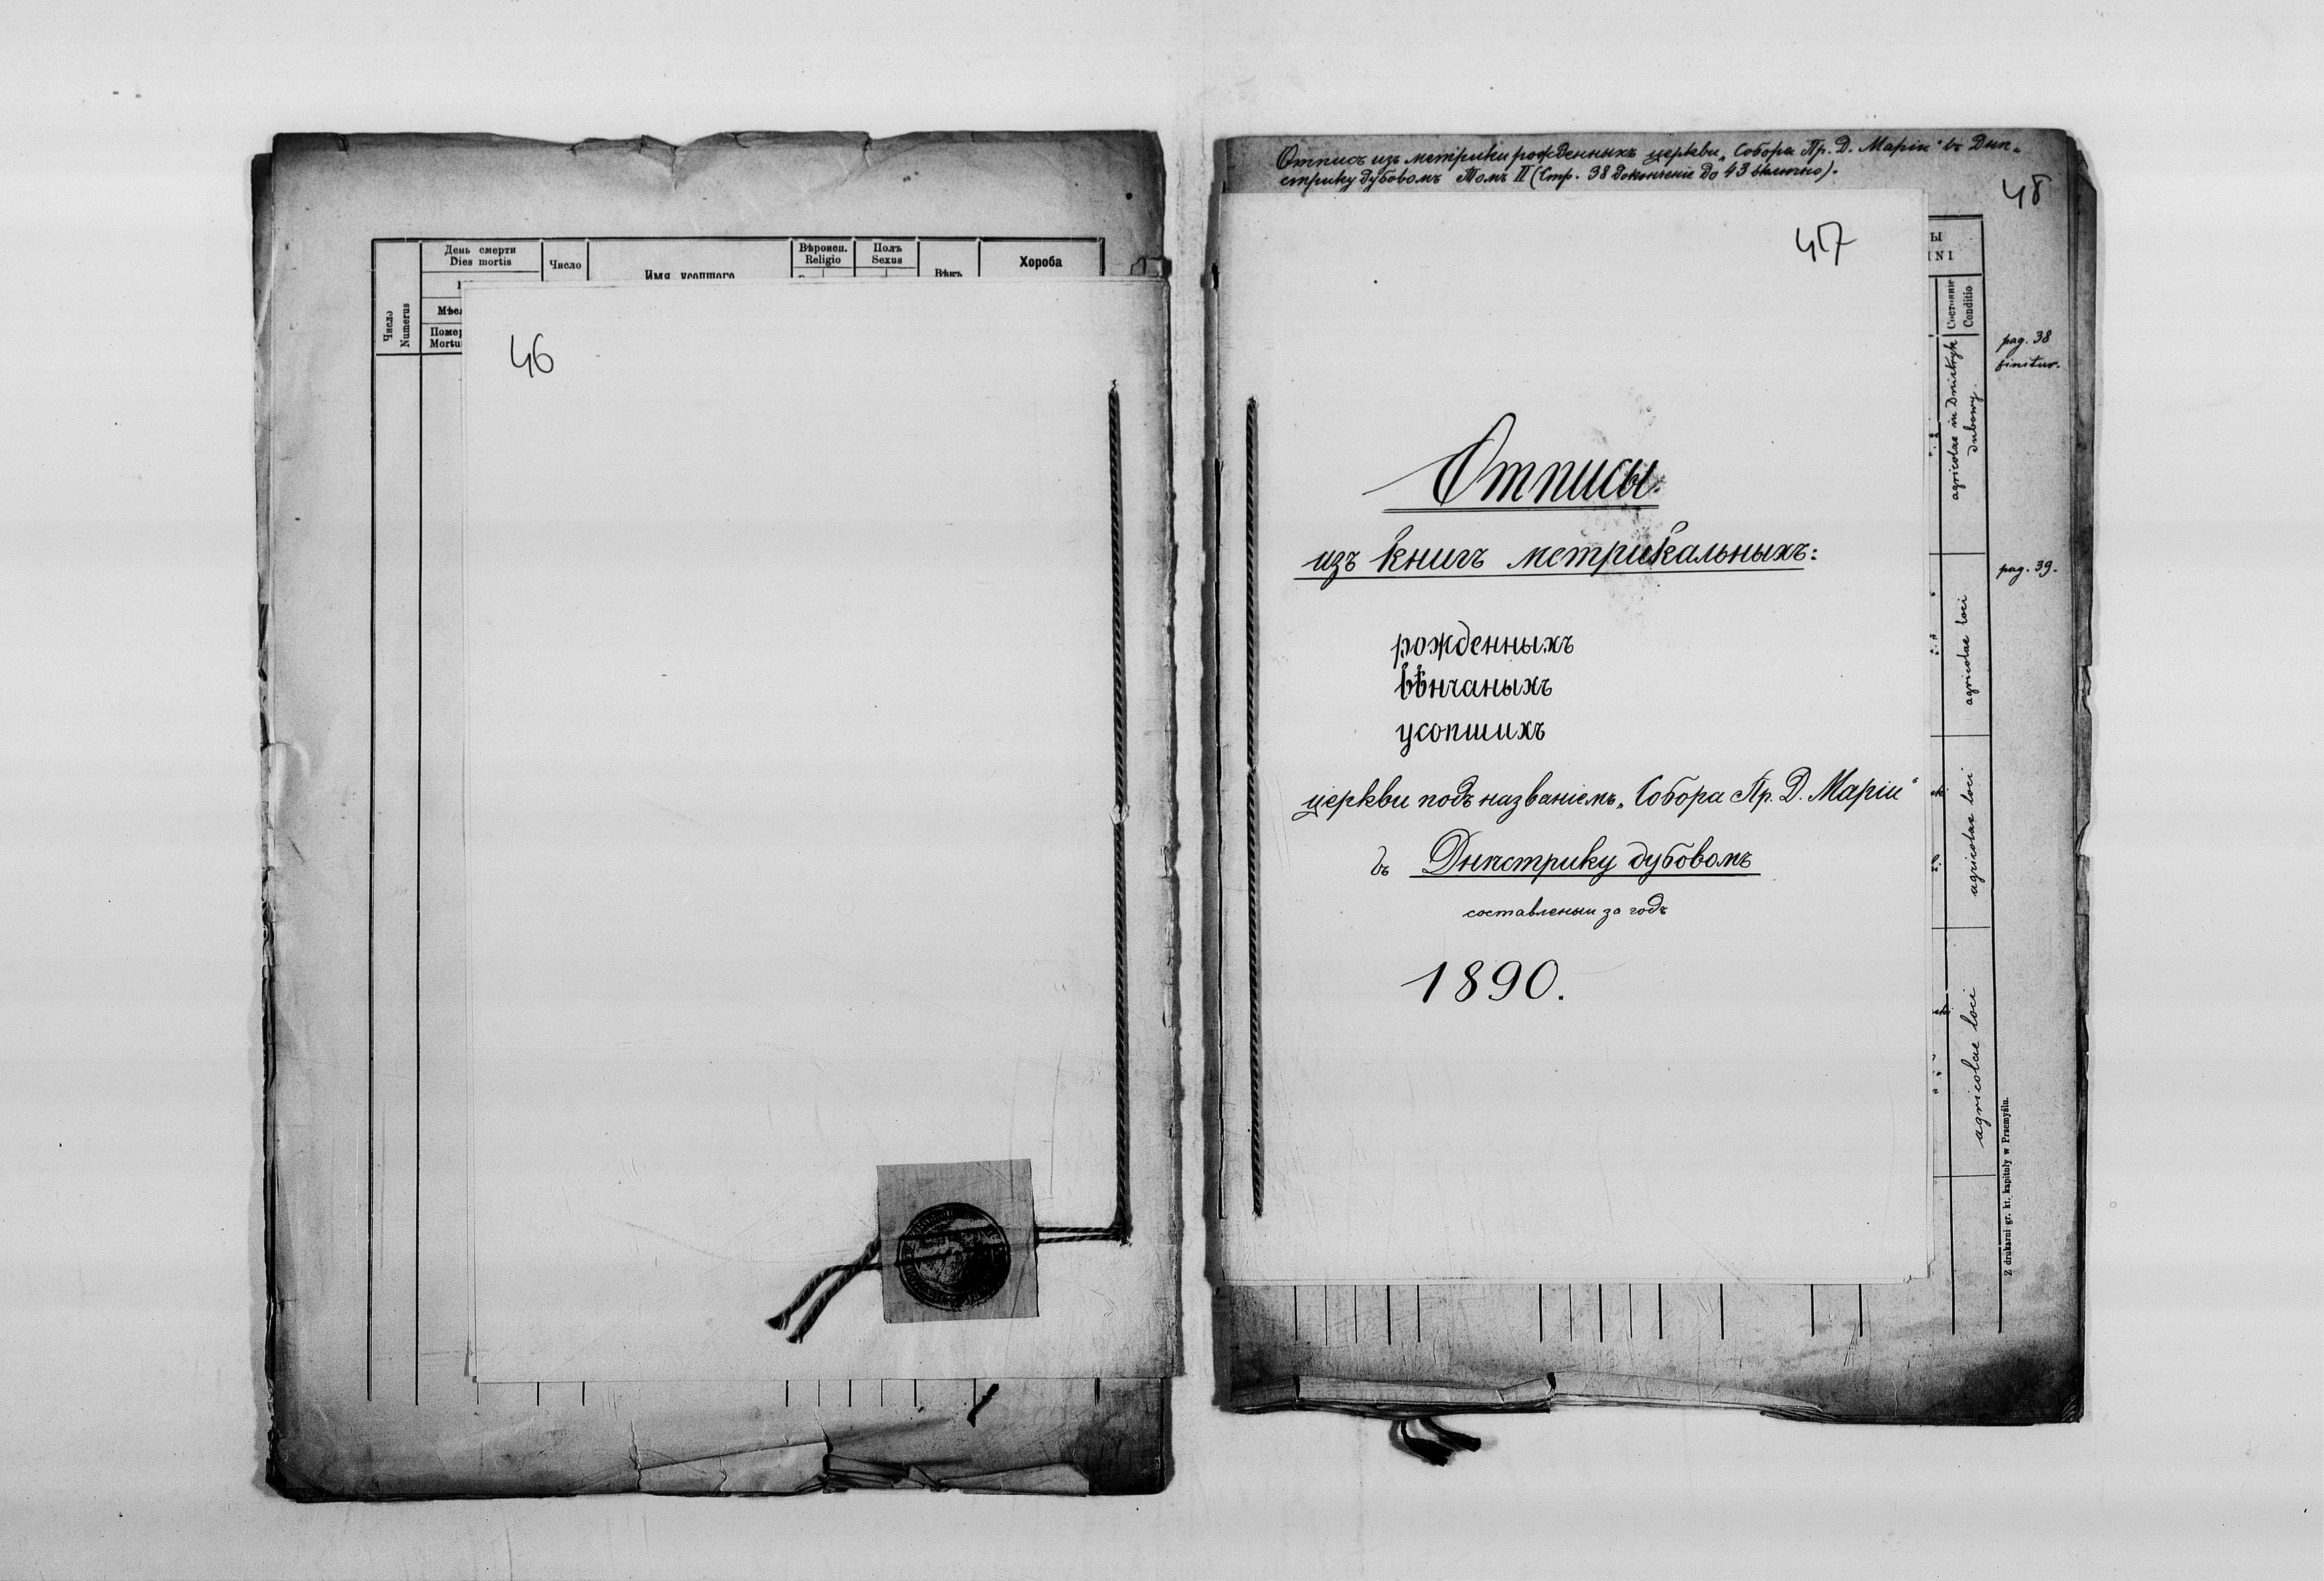 День смерти
Dies mortis
Число
Numerus
Число
Имя усопшого
Вѣроисп.
Religio
Полъ
Sexus
Вѣкъ
Хороба
Мѣс
Помер
Mortu
46
Отпись изъ метрики рожденныхъ церкви „Собора Пр. Д. Маріи“ въ Днѣ-
стрику дубовомъ Томъ II (Стр. 38 докончение до 43 включно).
48
47
Отписы
изъ книгъ метрикальныхъ:
рожденныхъ
вѣнчаныхъ
усопшихъ
церкви подъ названіемъ „Собора Пр. Д. Маріи“
въ Днѣстрику дубовомъ
составлены за годъ
1890.
Ы
INI
Состояніе
Conditio
agricolae in Dniestryk
dubowy.
agricolae loci
agricolae loci
agricolae loci
pag. 38
finitur.
pag. 39.
Z drukarni gr. kt. kapituły w Przemyślu.